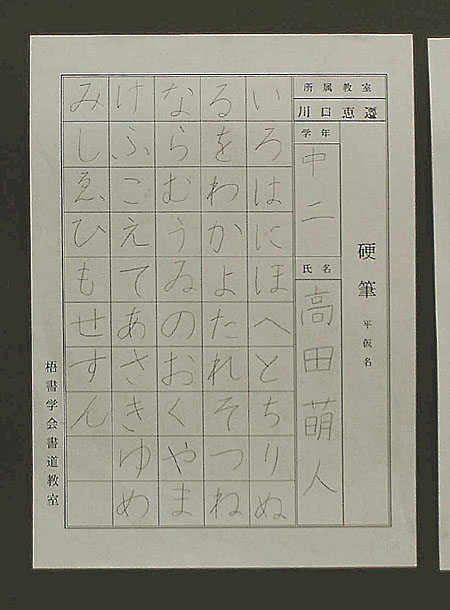 硬筆 平仮名
所属教室
川口恵遷
学年
中二
氏名
高田萌人
いろはにほへとちりぬ
るをわかよたれそつね
ならむうゐのおくやま
けふこえてあさきゆめ
みしゑひもせすん
梧書学会書道教室